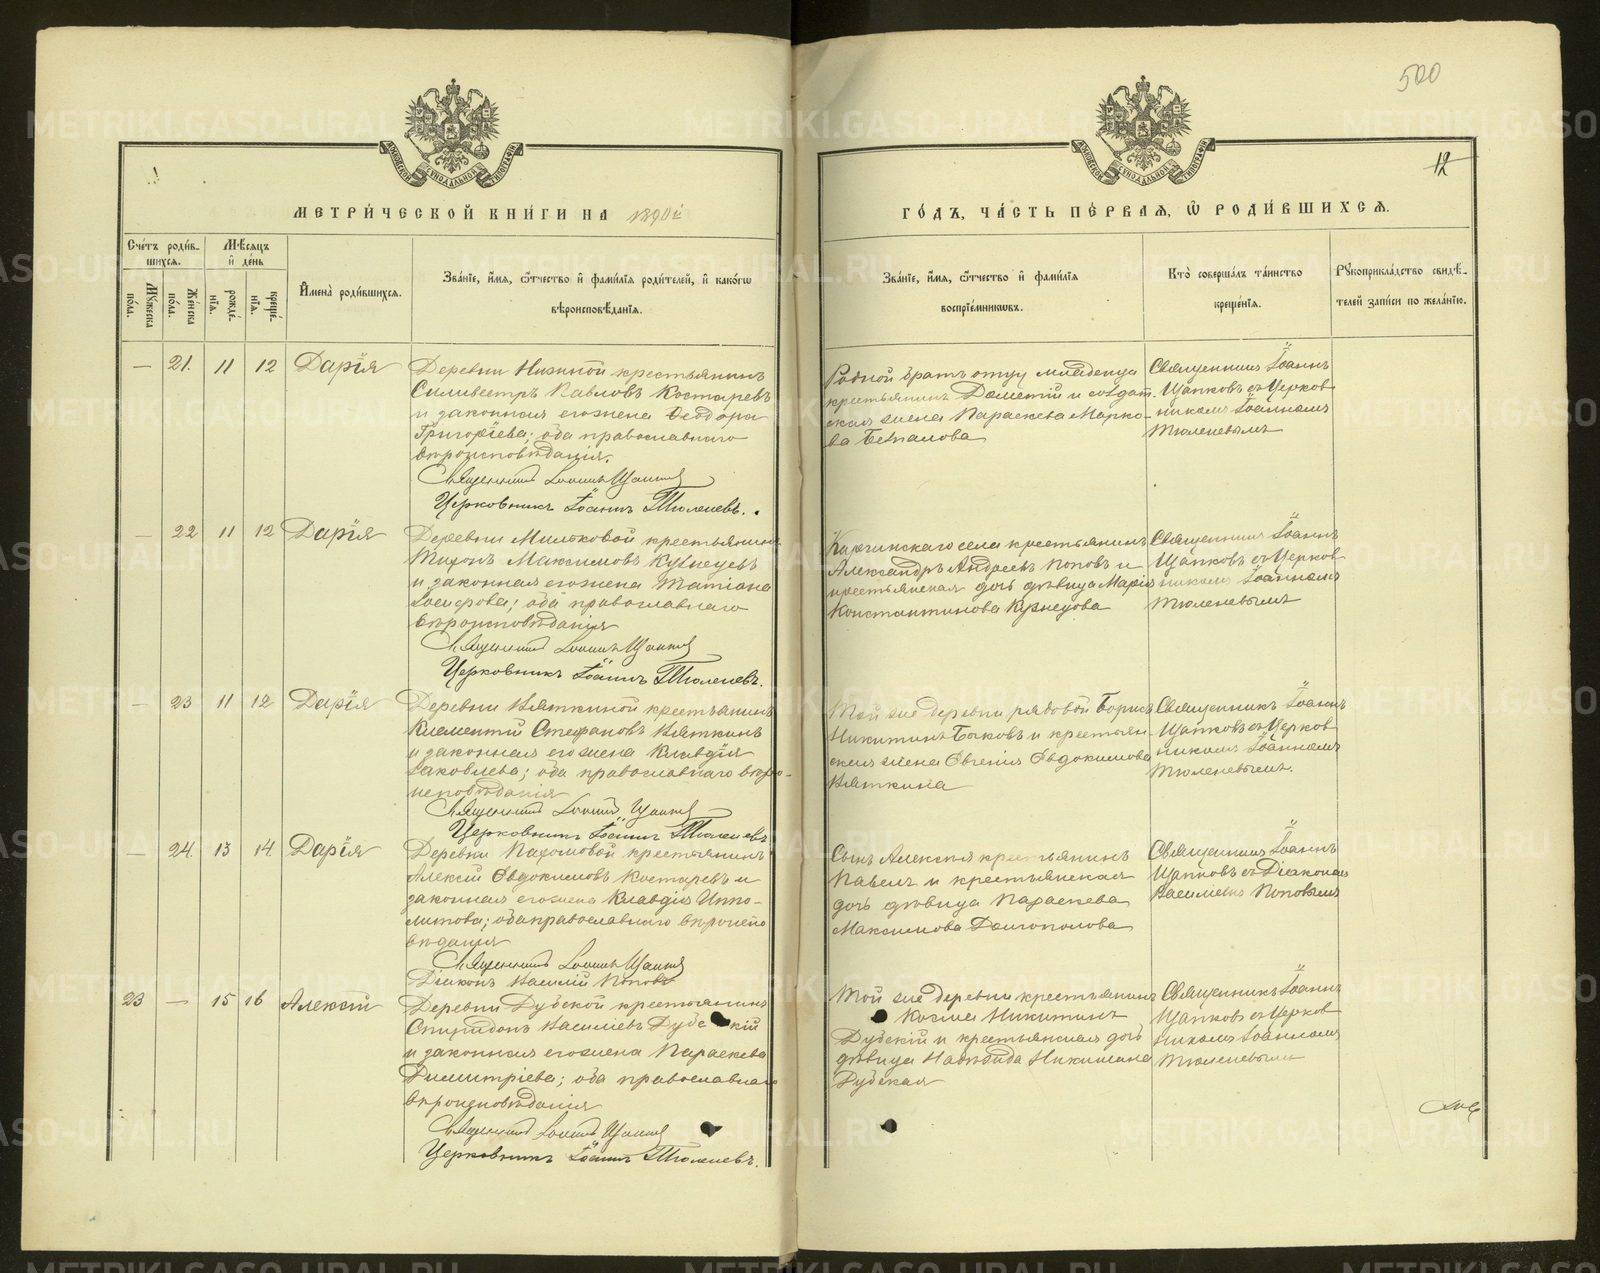 500
12
МЕТРИ́ЧЕСКОЙ КНИ́ГИ НА 1890й
ГО́ДЪ, ЧА́СТЬ ПЕ́РВАЯ, Ѡ РОДИ́ВШИХСЯ.
Сче́тъ роди́вшихся.
Мꙋ́жеска по́ла.
Же́нска по́ла.
Мѣ́сяцъ и де́нь
рожде́нїя.
креще́нїя.
Имена̀ роди́вшихся.
Зва́нїе, и́мя, ѻ́тчество и фами́лїя роди́телей, и како́гѡ вѣроисповѣ́данїя.
Зва́нїе, и́мя, ѻ́тчество и фами́лїя воспрїе́мниковъ.
Кто̀ соверша́лъ та́инство креще́нїя.
Рꙋкоприкла́дство свидѣ́телей за́писи по жела́нїю.
— 21. 11 12 Дарія
Деревни Нижной крестьянинъ
Сильвестръ Павловъ Костаревъ
и законная его жена Ѳеодора
Григоріева; оба православнаго
вѣроисповѣданія.
Священникъ Іоаннъ Щапковъ
Церковникъ Іоаннъ Тюленевъ.
Родной братъ отцу младенца
крестьянинъ Дометій и солдат-
ская жена Параскева Марко-
ва Безпалова
Священникъ Іоаннъ
Щапковъ съ Церков
никомъ Іоанномъ
Тюленевымъ
— 22 11 12 Дарія
Деревни Мильковой крестьянинъ
Тихонъ Максимовъ Кузнецовъ
и законная его жена Татіана
; оба православнаго
вѣроисповѣданія
Священникъ Іоаннъ Щапковъ
Церковникъ Іоаннъ Тюленевъ.
села крестьянинъ
Александръ Андреевъ Поповъ и
крестьянская дочь дѣвица Марія
Константинова Кузнецова
Священникъ Іоаннъ
Щапковъ съ Церков
никомъ Іоанномъ
Тюленевымъ
— 23 11 12 Дарія
Деревни Вяткиной крестьянинъ
Климентій Стефановъ Вяткинъ
и законная его жена Клавдія
Іаковлева; оба православнаго вѣро-
исповѣданія
Священникъ Іоаннъ Щапковъ
Церковникъ Іоаннъ Тюленевъ
Той же деревни рядовой Борисъ
Никитинъ Быковъ и крестьян
ская жена Евгенія Евдокимова
Вяткина
Священникъ Іоаннъ
Щапковъ съ Церков
никомъ Іоанномъ
Тюленевымъ.
— 24. 13 14 Дарія
Деревни Пахомовой крестьянинъ
Алексій Евдокимовъ Костаревъ и
законная его жена Клавдія Иппо-
литова; оба православнаго вѣроиспо
вѣданія
Священникъ Іоаннъ Щапковъ
Діаконъ Василій Поповъ
Сынъ Алексія крестьянинъ
Павелъ и крестьянская
дочь дѣвица Параскева
Максимова Долгополова
Священникъ Іоаннъ
Щапковъ съ Діакономъ
Василіемъ Поповымъ
23 — 15 16 Алексій
Деревни Дубской крестьянинъ
Спиридонъ Васильевъ Дубскій
и законная его жена Параскева
Димитріева; оба православнаго
вѣроисповѣданія
Священникъ Іоаннъ Щапковъ
Церковникъ Іоаннъ Тюленевъ.
Той же деревни крестьянинъ
Косма Никитинъ
Дубскій и крестьянская дочь
дѣвица Никитина
Дубская
Священникъ Іоаннъ
Щапковъ съ Церков
никомъ Іоанномъ
Тюленевымъ
METRIKI.GASO-URAL.RU